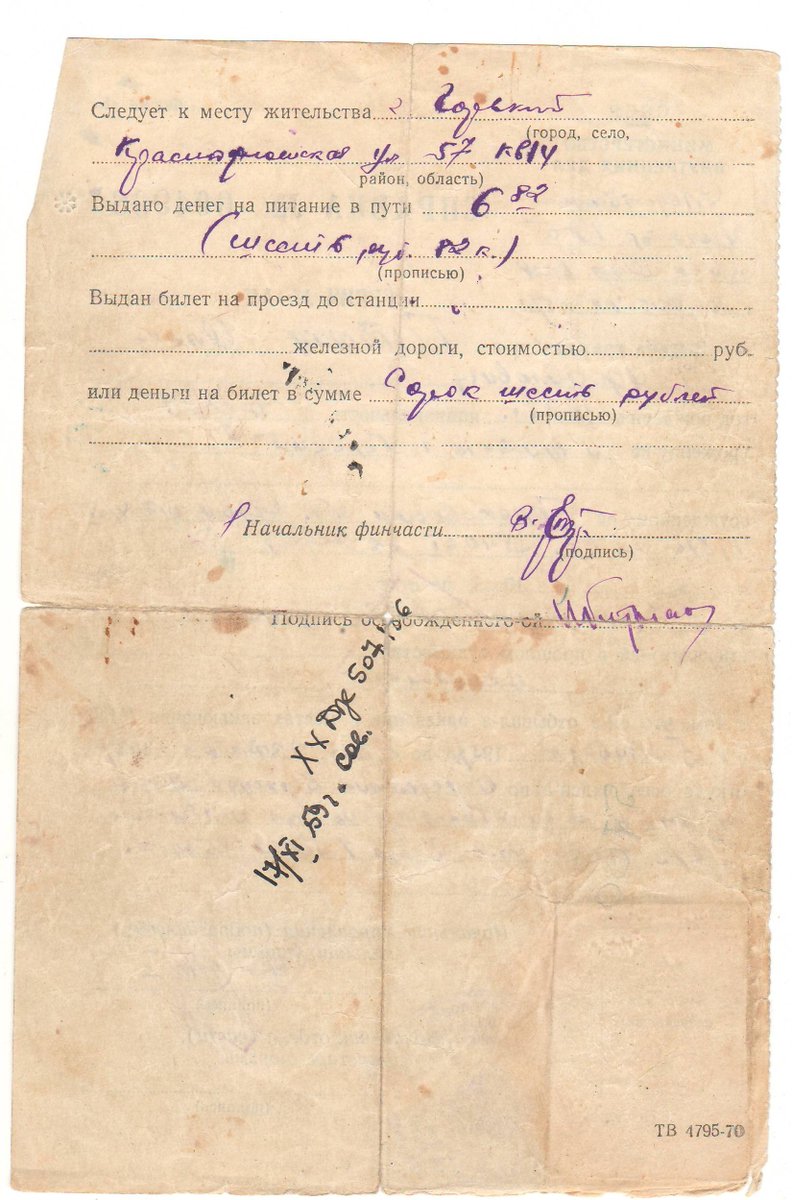 Следует к месту жительства г Горький
(город, село,
ул 57 кв 14
район, область)
Выдано денег на питание в пути 6 82
(шесть руб. 82 к.)
(прописью)
Выдан билет на проезд до станции
железной дороги, стоимостью руб.
или деньги на билет в сумме Сорок шесть рублей
(прописью)
Начальник финчасти
(подпись)
Подпись освобожденного-ой
XX 507196
17/XI 59 г. Сов.
ТВ 4795-70